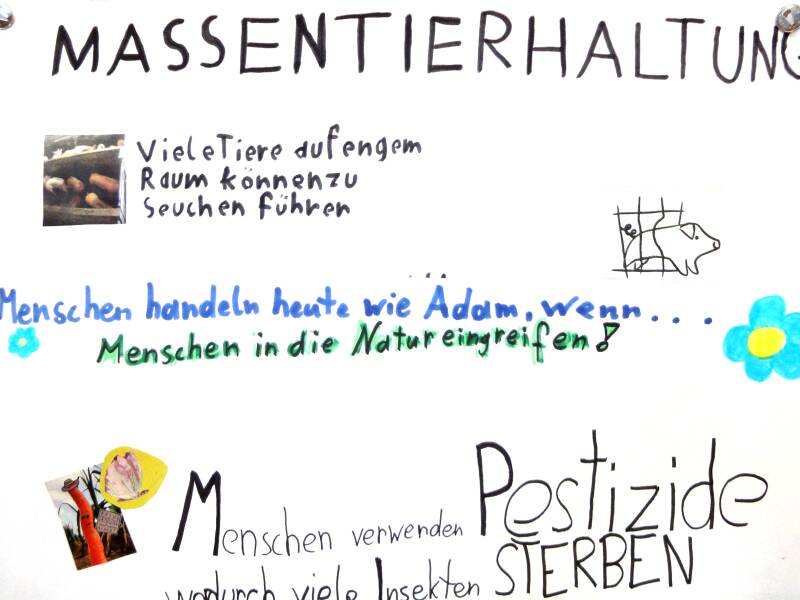 MASSENTIERHALTUNG
Viele Tiere auf engem
Raum können zu
Seuchen führen
Menschen handeln heute wie Ädam, wenn...
Menschen in die Natur eingreifen!
Menschen verwenden Pestizide
wodurch viele Insekten STERBEN